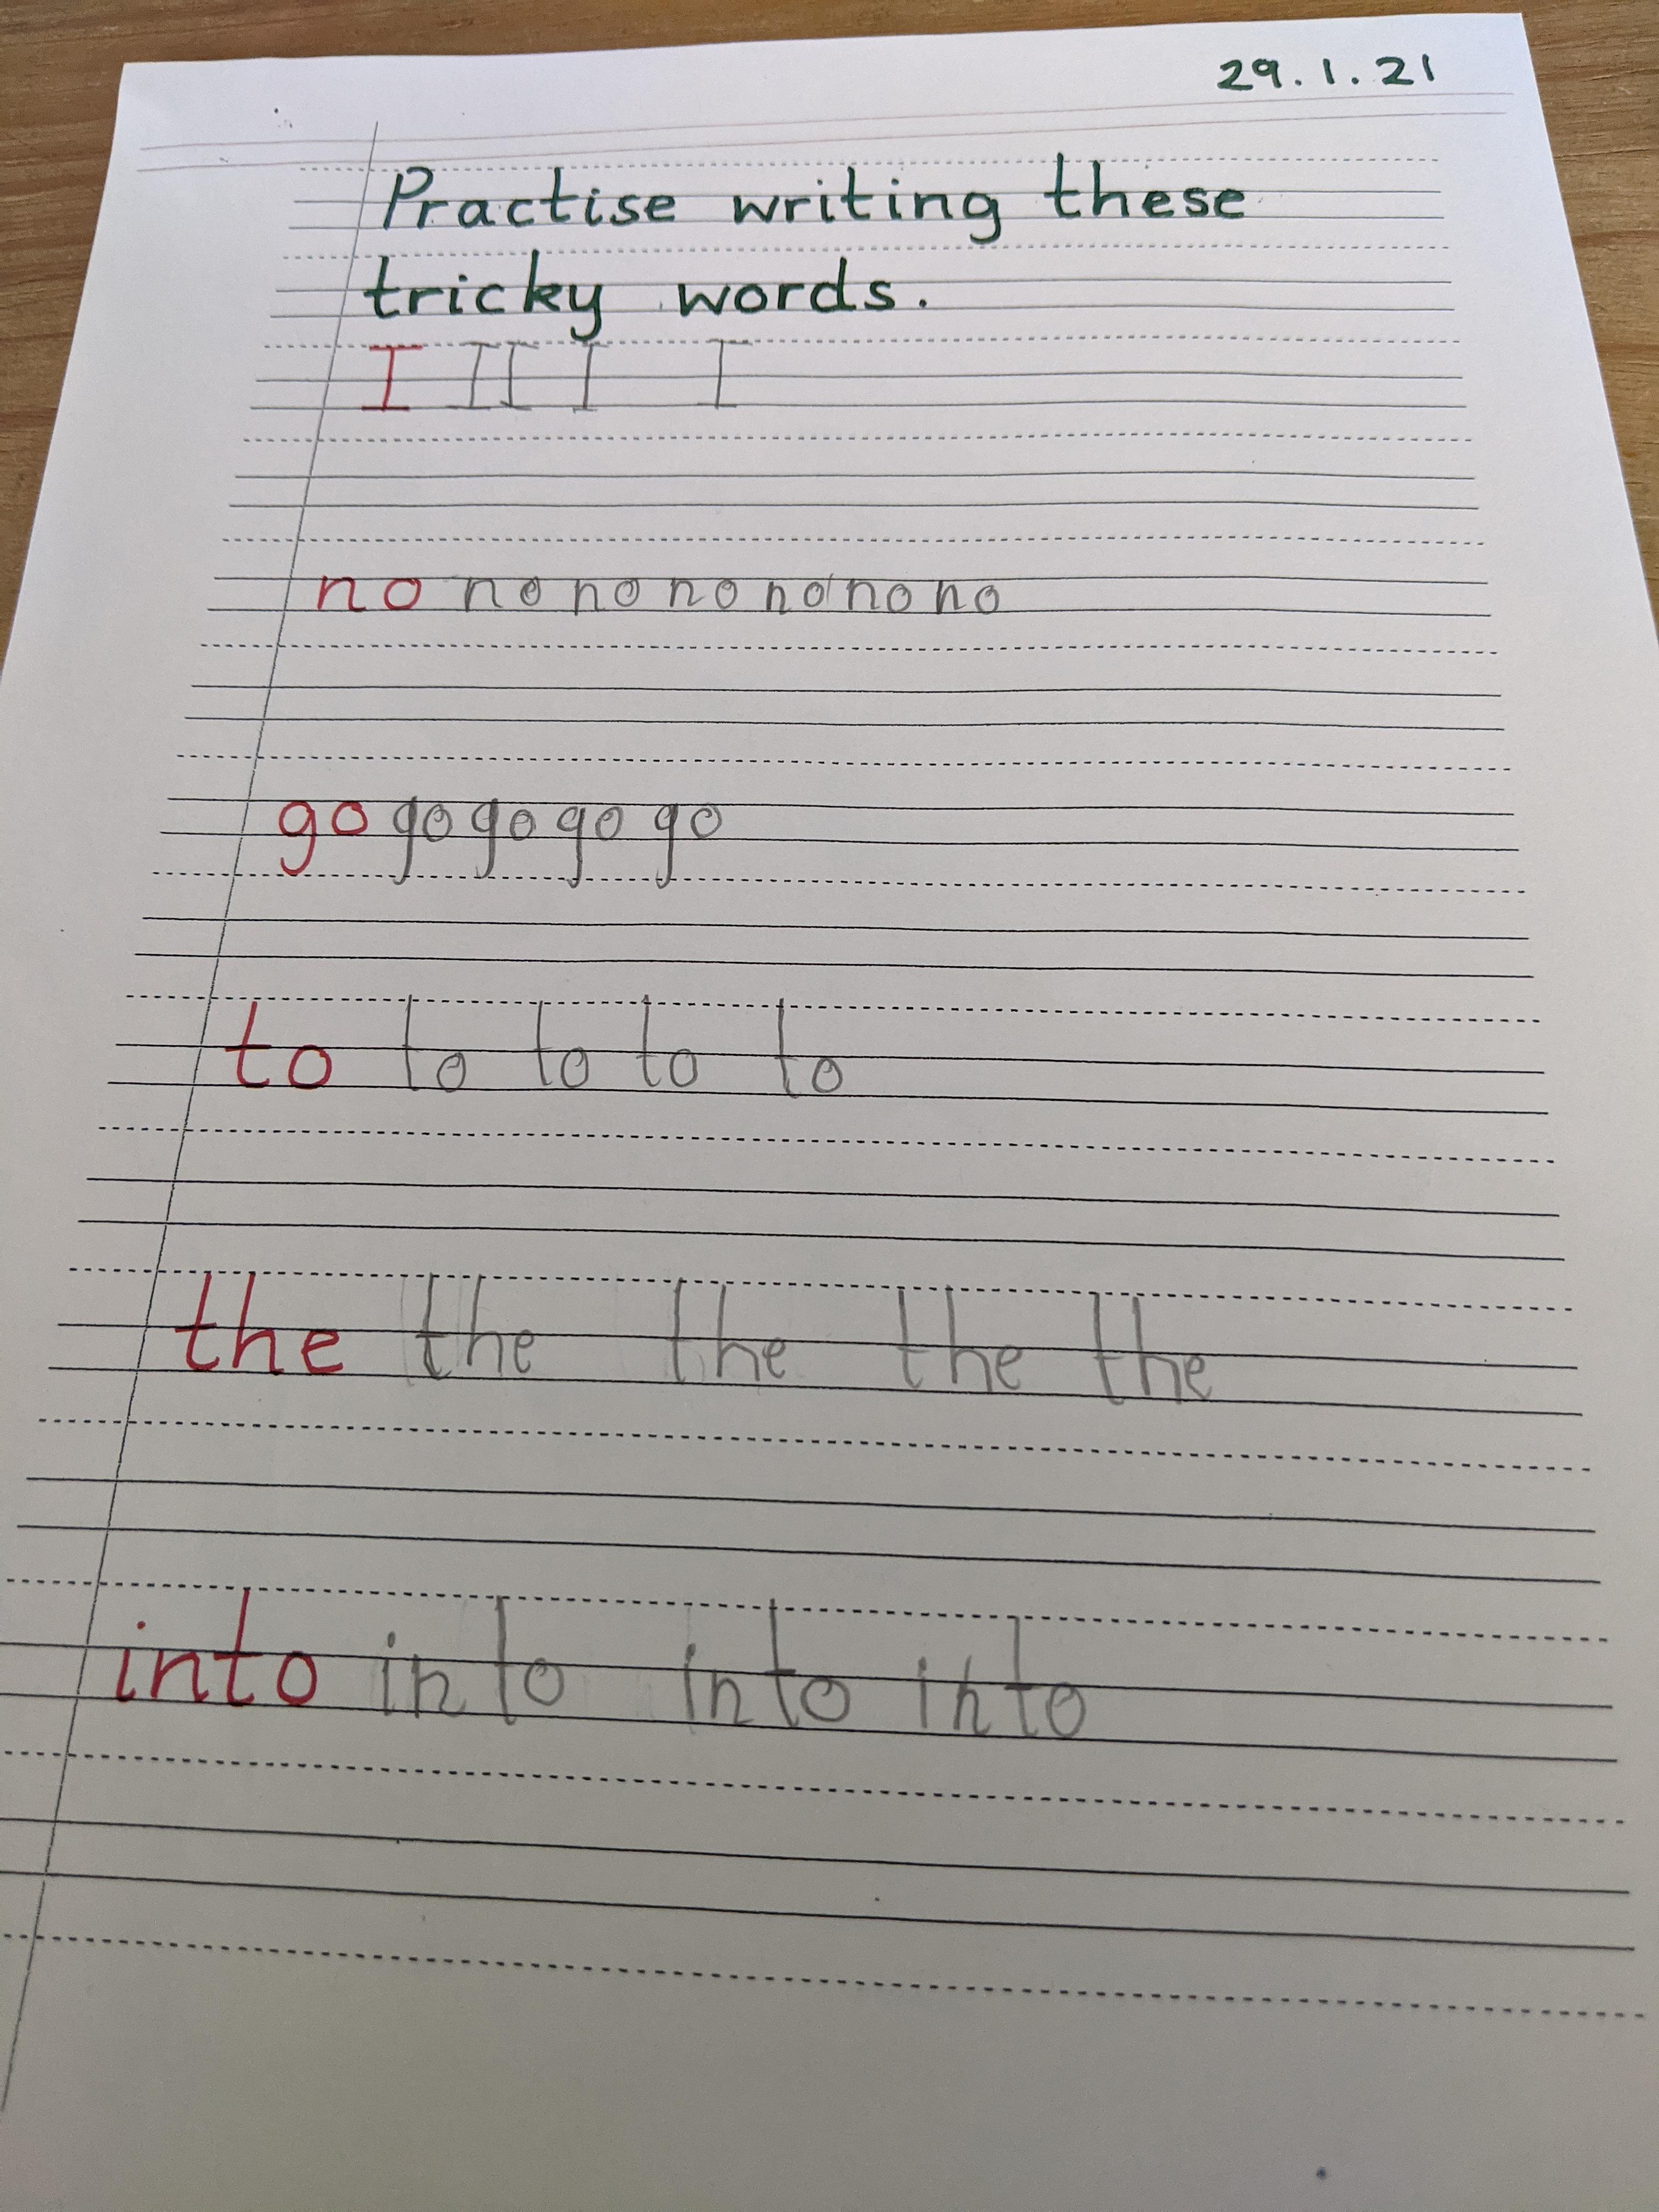 29.1.21
Practise writing these
tricky words.
I I I I I
no no no no no no no
go go go go go
to to to to to
the the the the the
into into into into